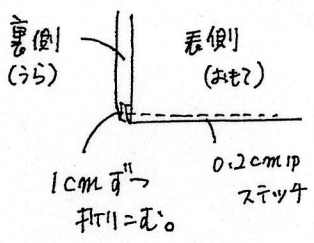 裏側
(うら)
表側
(おもて)
1cmずつ
折りこむ。
0.2cm巾
ステッチ